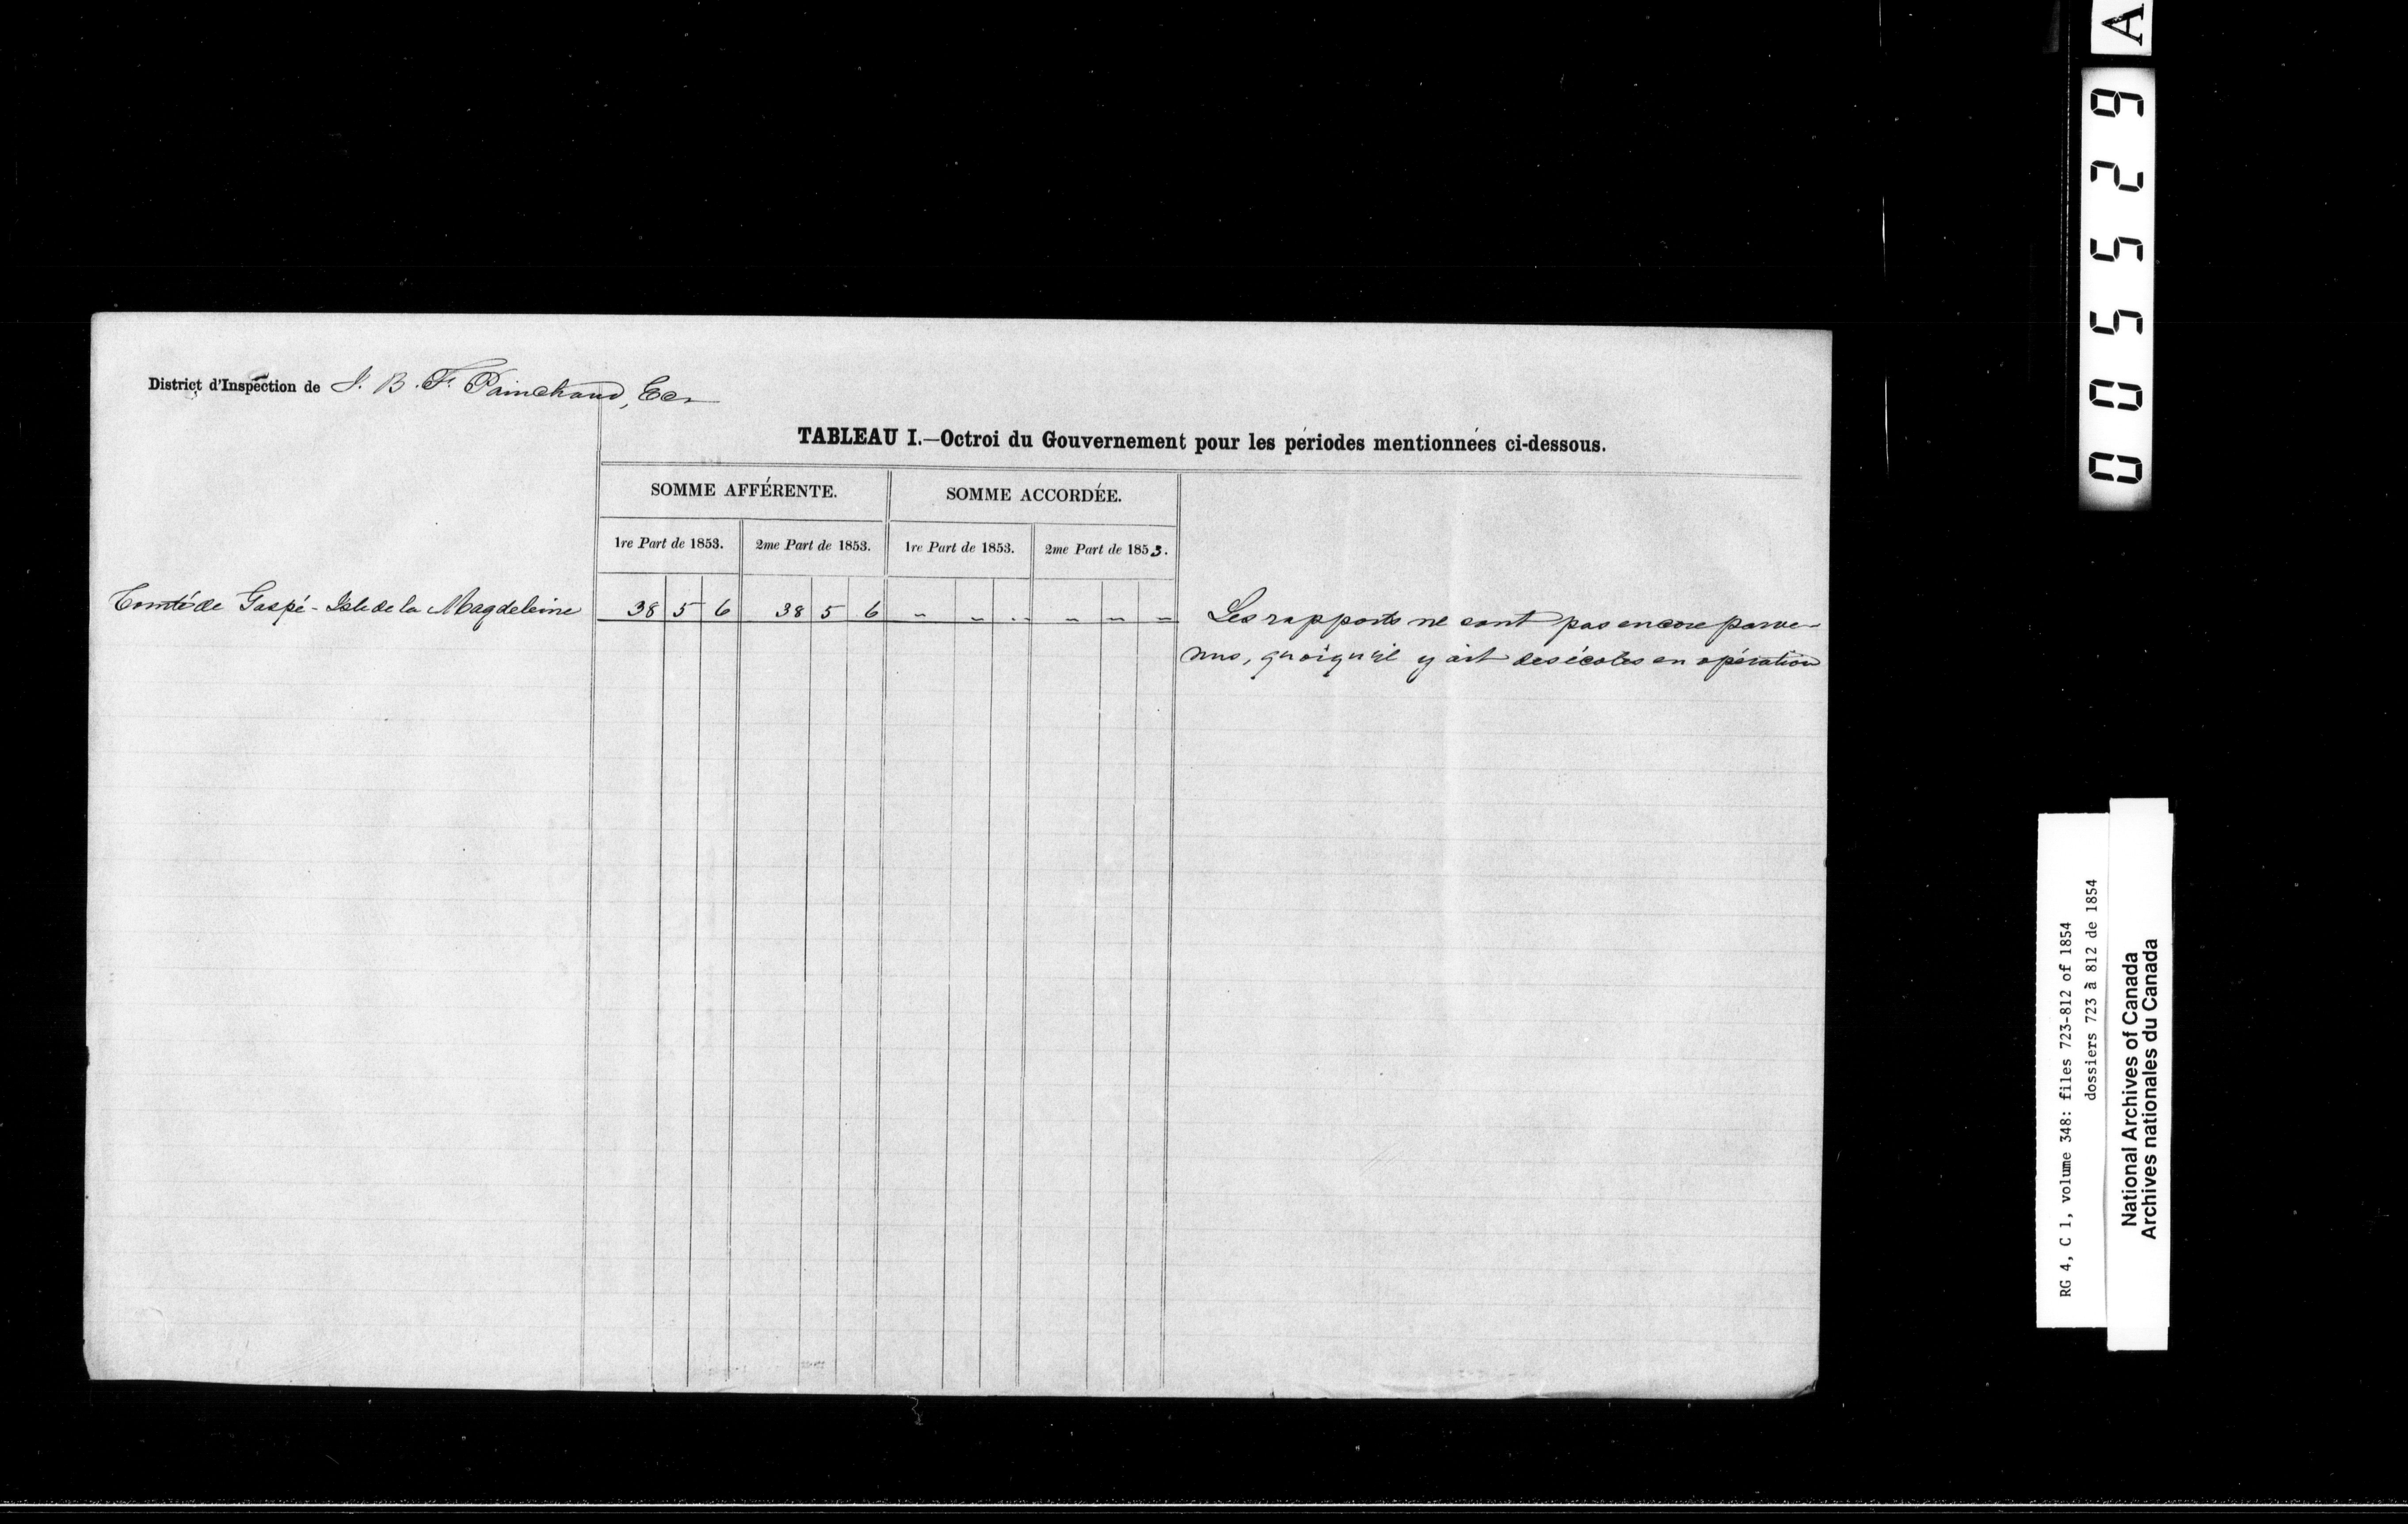 District d'Inspection de J. B. F. Painchaud, Ecr
TABLEAU I.—Octroi du Gouvernement pour les périodes mentionnées ci-dessous.
SOMME AFFÉRENTE. SOMME ACCORDÉE.
1re Part de 1853. 2me Part de 1853. 1re Part de 1853. 2me Part de 1853.
Comté de Gaspé - Isle de la Magdeleine 38 5 6 38 5 6 - - - - - - Les rapports ne sont pas encore parve-
nus, quoiqu'il y ait des écoles en opération
005529 A
RG 4, C 1, volume 348: files 723-812 of 1854
dossiers 723 à 812 de 1854
National Archives of Canada
Archives nationales du Canada